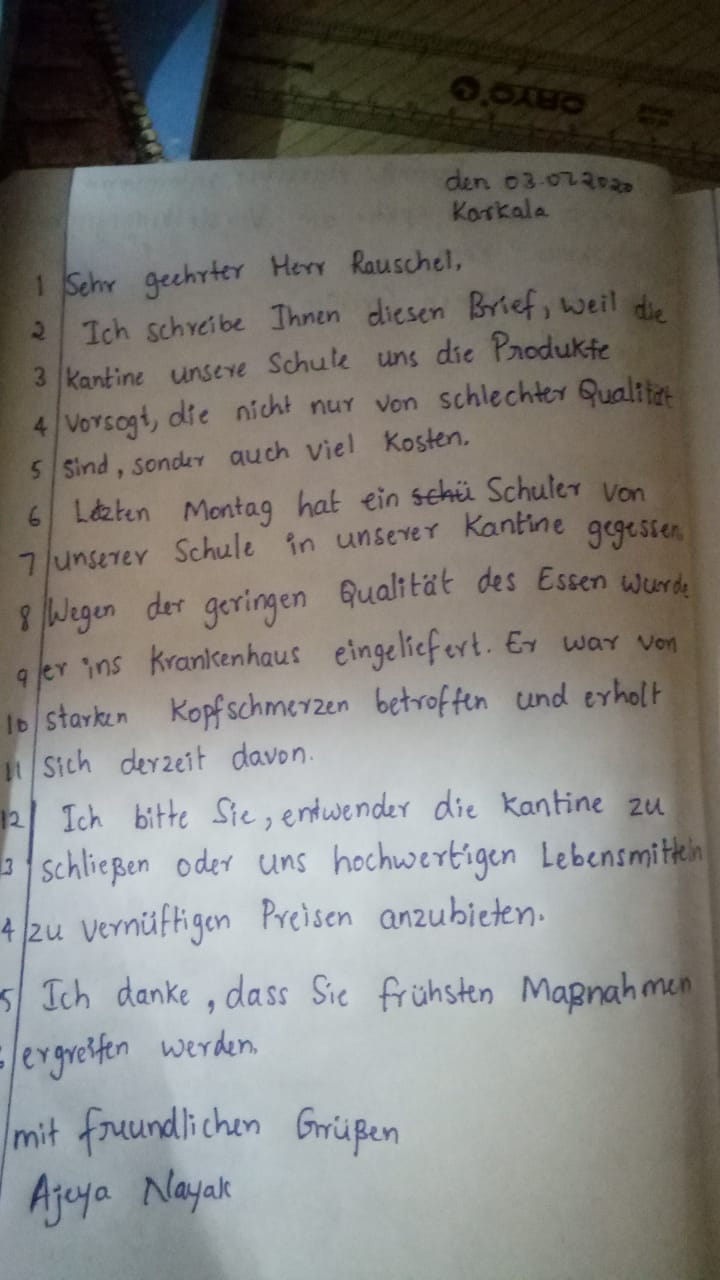 ORYO
den 03.07 2020
Karkala
1 Sehr geehrter Herr Rauschel,
2 Ich schreibe Ihnen diesen Brief, weil die
3 Kantine unsere Schule uns die Produkte
4 vorsogt, die nicht nur von schlechter Qualität
5 sind, sonder auch viel Kosten.
6 Letzten Montag hat ein schü Schuler von
7 unserer Schule in unserer Kantine gegessen.
8 Wegen der geringen Qualität des Essen wurde
9 er ins Krankenhaus eingeliefert. Er war von
10 starken Kopfschmerzen betroffen und erholt
11 sich derzeit davon.
12 Ich bitte Sie, entwender die Kantine zu
3 schließen oder uns hochwertigen Lebensmitteln
4 zu vernüftigen Preisen anzubieten.
5 Ich danke, dass Sie frühsten Maßnahmen
ergreifen werden.
mit freundlichen Grrüßen
Ajeya Nayak